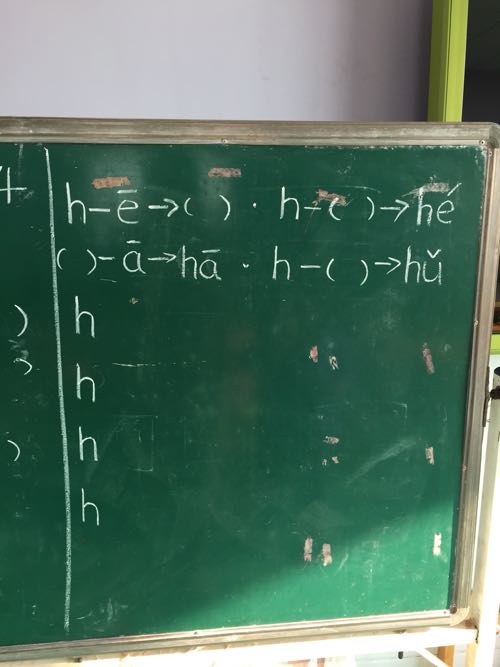 h-ē→( ) · h-( )→hé
( )-ā→hā · h-( )→hǔ
) h
h
) h
h